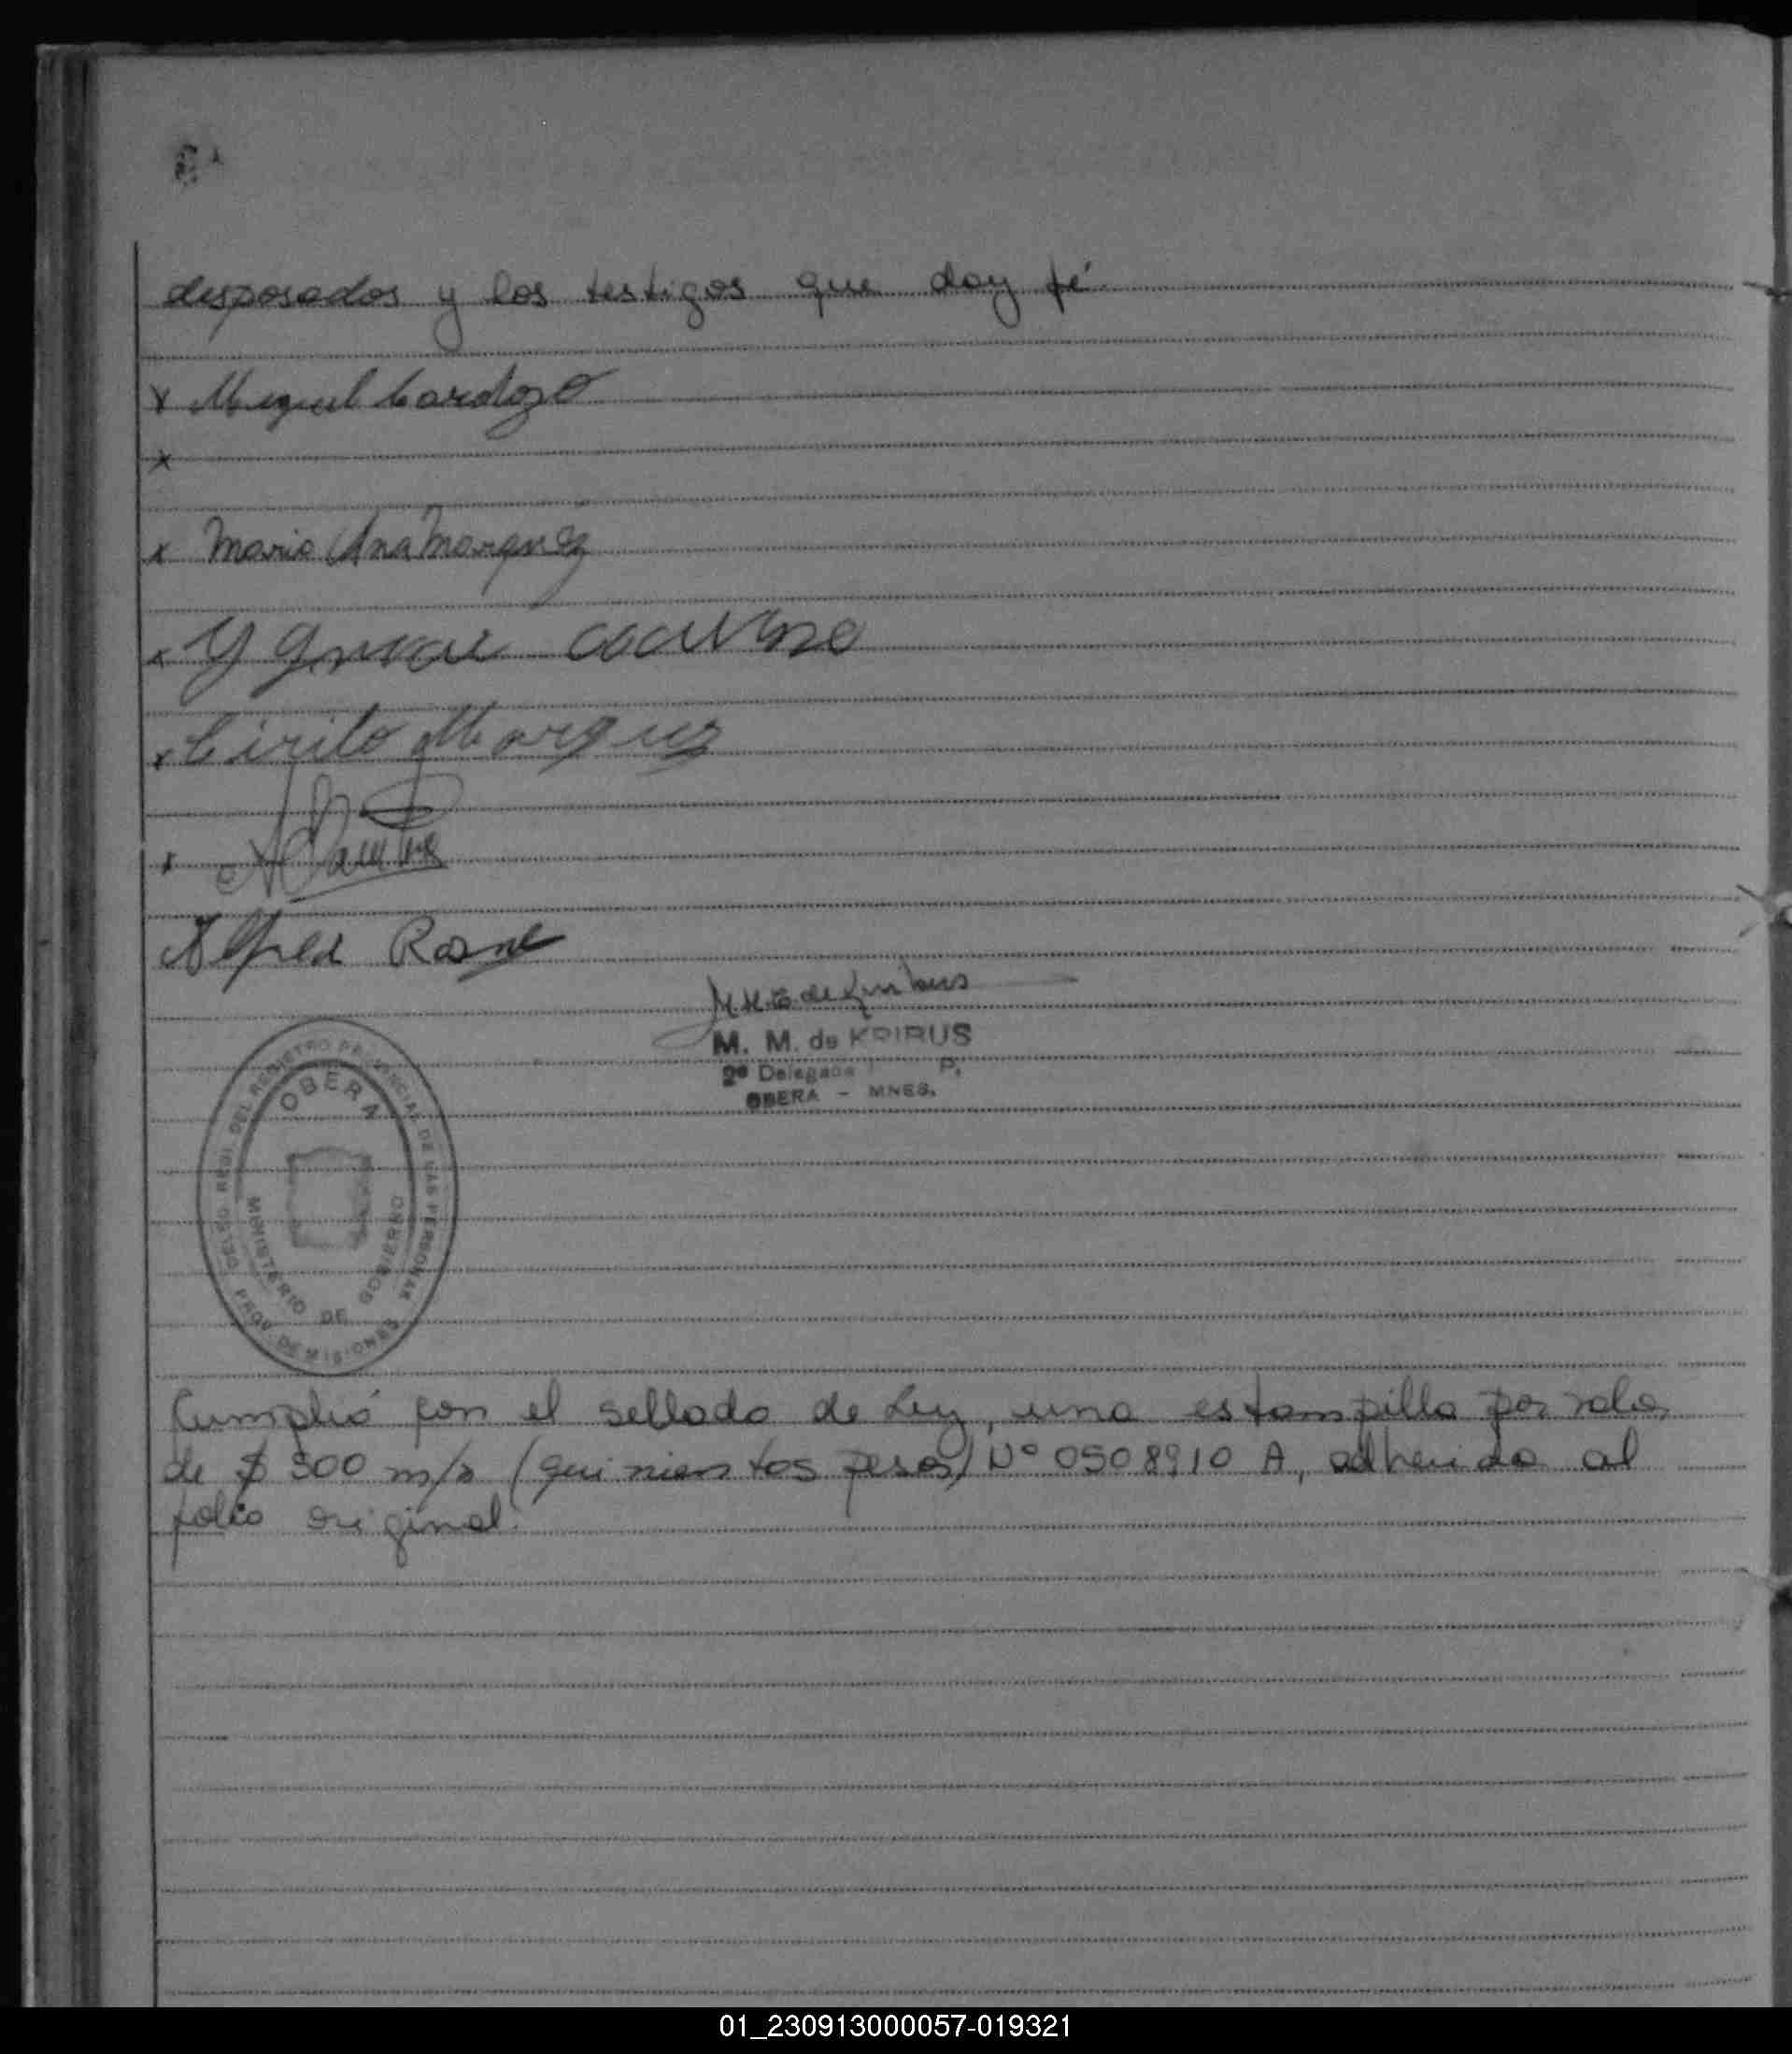 desposados y los testigos que doy fé.
x Miguel Cardozo
x
x Maria Ana Marquez
x
x Cirilo Marquez
x
Alfred
M. M. de KRIRUS
2º Delegada P.
OBERA - MNES.
DEL REGISTRO PROVINCIAL DE LAS PERSONAS
OBERA
MINISTERIO DE GOBIERNO
PROV. DE MISIONES
Cumplió con el sellado de Ley, una estampilla por valor
de $ 500 m/n (quinientos pesos) Nº 0508910 A, adherida al
folio original.
01_230913000057-019321